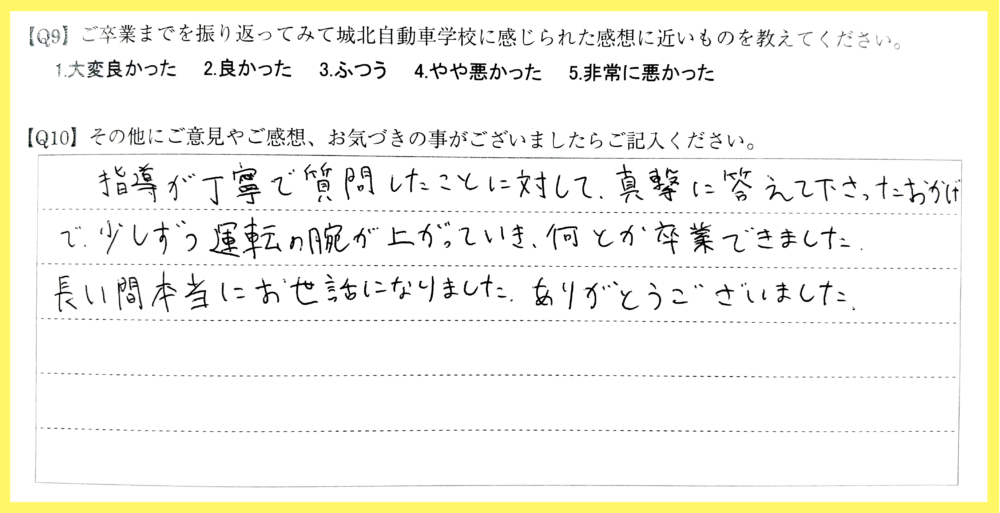 【Q9】ご卒業までを振り返ってみて城北自動車学校に感じられた感想に近いものを教えてください。
1.大変良かった 2.良かった 3.ふつう 4.やや悪かった 5.非常に悪かった
【Q10】その他にご意見やご感想、お気づきの事がございましたらご記入ください。
指導が丁寧で質問したことに対して、真摯に答えて下さったおかげ
で、少しずつ運転の腕が上がっていき、何とか卒業できました。
長い間本当にお世話になりました。ありがとうございました。